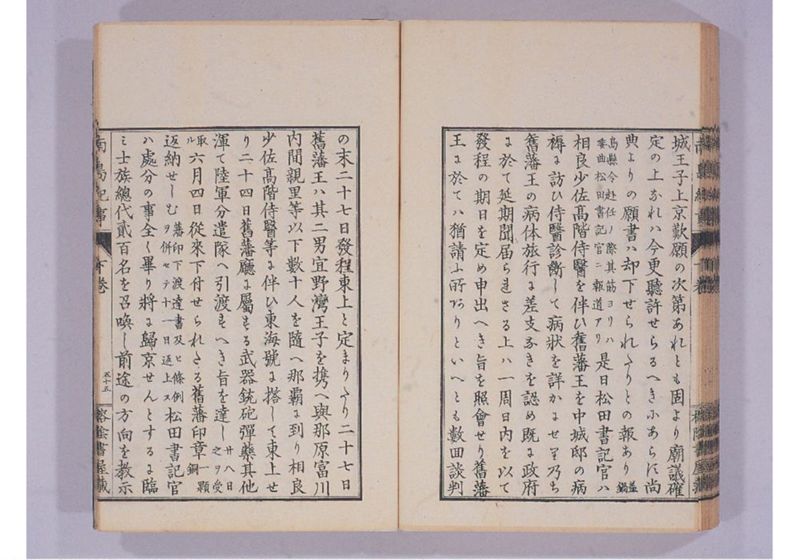 城王子上京歎願の次第あれとも固より廟議確
定の上なれハ今更聽許せらるへきにあらに尚
典よりの願書ハ却下せられたりとの報あり
島縣令赴任ノ際其筋ヨリハ
委曲松田書記官ニ報道アリ
是日松田書記官ハ
相良少佐高階侍醫を伴ひ舊藩王を中城邸の病
褥に訪ひ侍醫診斷して病狀を詳かにせり乃ち
舊藩王の病体旅行に差支なきを認め既に政府
に於て延期聞届られさる上ハ一周日内を以て
發程の期日を定め申出へき旨を照會せり舊藩
王に於てハ猶請ふ所ありといへとも數囬談判
の末二十七日發程東上と定まりたり二十七日
舊藩王ハ其二男宜野灣王子を携へ與那原富川
内間親里等以下數十人を隨へ那覇に到り相良
少佐高階侍醫等に伴ひ東海號に搭して東上せ
り二十四日舊藩廳に屬する武器銃砲彈藥其他
渾て陸軍分遣隊へ引渡すへき旨を達し
廿八日
之ヲ受
取ル
六月四日從來下付せられたる舊藩印章
一顆
銅
返納せしむ
藩印下渡達書及ヒ條例
ヲ併セテ十一日返上ス
松田書記官
ハ處分の事全く畢り將に歸京せんとするに臨
ミ士族總代貳百名を召喚し前途の方向を教示
南島紀事
下卷
五十五